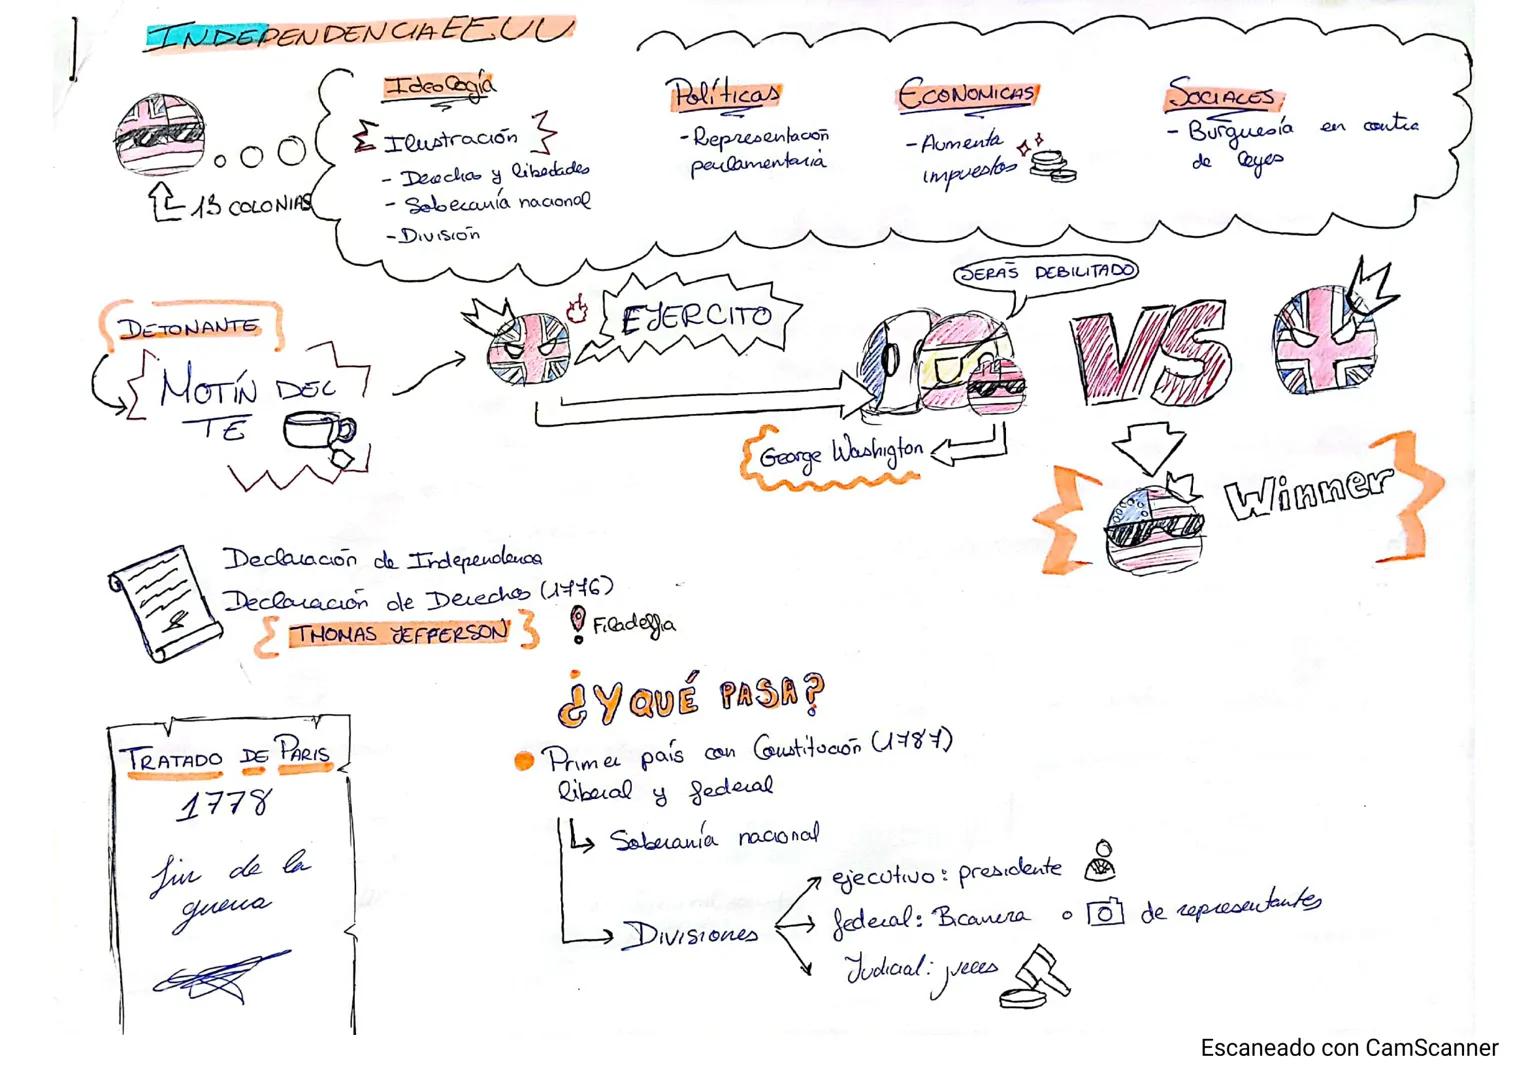 INDEPENDENCIA EEUU
Ideología
Ilustración
- Derechos y libertades
- Soberanía nacional
- División
Políticas
- Representación
parlamentaria
ECONOMICAS
- Aumenta
impuestos
SOCIALES
- Burguesía en contra
de leyes
13 COLONIAS
DETONANTE
MOTÍN DEL
TE
EJERCITO
SERÁS DEBILITADO
VS
George Washington
Winner
Declaración de Independencia
Declaración de Derechos (1776)
THOMAS JEFFERSON
Filadelfia
¿Y QUÉ PASA?
Primer país con Constitución (1787)
liberal y federal
Soberanía nacional
DIVISIONES
ejecutivo: presidente
federal: Bicamera o de representantes
Judicial: jueces
TRATADO DE PARIS
1778
fin de la
guerra
Escaneado con CamScanner